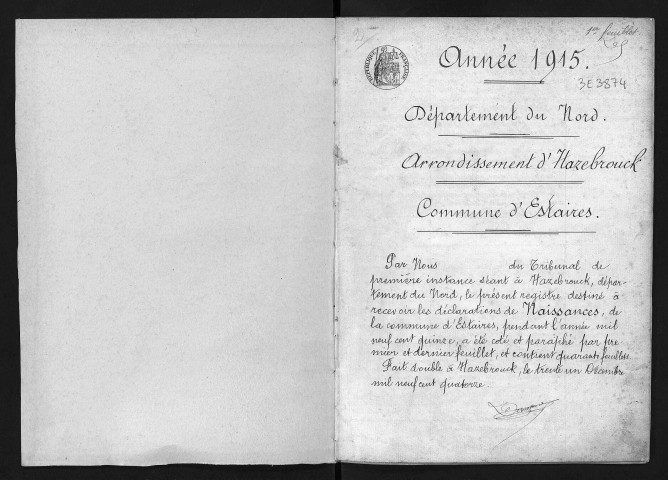 1er feuillet
RÉPUBLIQUE FRANÇAISE
Année 1915.
3E3874
Département du Nord.
Arrondissement d'Hazebrouck
Commune d'Estaires.
Par Nous du Tribunal de
première instance séant à Hazebrouck, dépar-
tement du Nord, le présent registre destiné à
recevoir les déclarations de Naissances, de
la commune d'Estaires, pendant l'année mil
neuf cent quinze, a été coté et paraphé par pre
mier et dernier feuillet, et contient quarante feuillets.
Fait double à Hazebrouck, le trente un Décembre
mil neuf cent quatorze